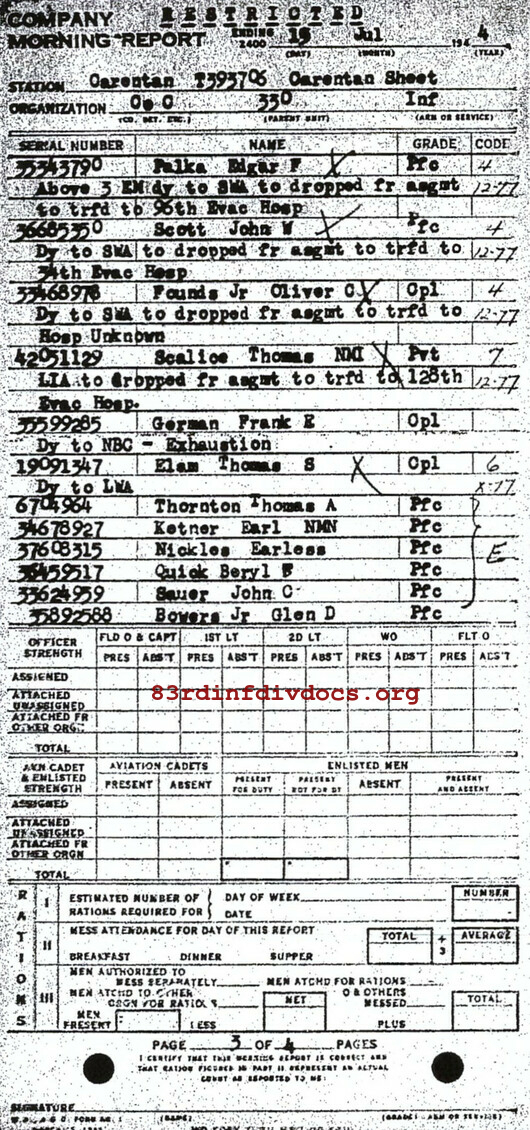 RESTRICTED
COMPANY
MORNING REPORT ENDING 2400 19 Jul 1944
(DAY) (MONTH) (YEAR)
STATION Carentan T393706 Carentan Sheet
ORGANIZATION Co C 330 Inf
(CO, DET, ETC.) (PARENT UNIT) (ARM OR SERVICE)
SERIAL NUMBER NAME GRADE CODE
35343790 Palka Edgar F X Pfc 4
Above 3 EM dy to SWA to dropped fr asgmt 12-77
to trfd to 96th Evac Hosp
36685350 Scott John W X Pfc 4
Dy to SWA to dropped fr asgmt to trfd to 12-77
34th Evac Hosp
33468978 Founds Jr Oliver C X Cpl 4
Dy to SWA to dropped fr asgmt to trfd to 12-77
Hosp Unknown
42051129 Scalice Thomas NMI X Pvt 7
LIA to dropped fr asgmt to trfd to 128th 12-77
Evac Hosp.
35599285 German Frank E Cpl
Dy to NBC - Exhaustion
19091347 Elam Thomas S X Cpl 6
Dy to LWA X-17
6704964 Thornton Thomas A Pfc
34678927 Ketner Earl NMN Pfc
37608315 Nickles Earless Pfc
36459517 Quick Beryl Pfc E
33624959 Sauer John C Pfc
35892588 Bowers Jr Glen D Pfc
OFFICER STRENGTH FLD O & CAPT 1ST LT 2D LT WO FLT O
PRES ABS'T PRES ABS'T PRES ABS'T PRES ABS'T PRES ABS'T
ASSIGNED
83rdinfdivdocs.org
ATTACHED UNASSIGNED
ATTACHED FR OTHER ORGN
TOTAL
AVN CADET & ENLISTED STRENGTH AVIATION CADETS ENLISTED MEN
PRESENT ABSENT PRESENT FOR DUTY PRESENT NOT FOR DY ABSENT PRESENT AND ABSENT
ASSIGNED
ATTACHED UNASSIGNED
ATTACHED FR OTHER ORGN
TOTAL
RATIONS
I ESTIMATED NUMBER OF RATIONS REQUIRED FOR { DAY OF WEEK DATE NUMBER
II MESS ATTENDANCE FOR DAY OF THIS REPORT TOTAL ÷ 3 AVERAGE
BREAKFAST DINNER SUPPER
III MEN AUTHORIZED TO MESS SEPARATELY MEN ATCHD FOR RATIONS
MEN ATCHD TO OTHER ORGN FOR RATIONS NET O & OTHERS MESSED TOTAL
MEN PRESENT LESS PLUS
PAGE 3 OF 4 PAGES
I CERTIFY THAT THIS MORNING REPORT IS CORRECT AND
THAT RATION FIGURES IN PART II REPRESENT AN ACTUAL
COUNT AS REPORTED TO ME:
SIGNATURE
(NAME) (GRADE) (ARM OR SERVICE)